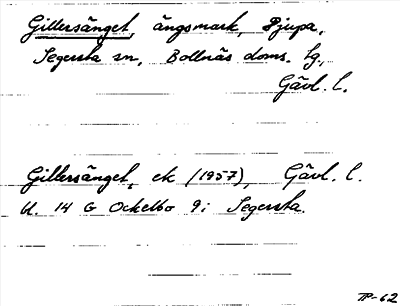 Gillersänget, ängsmark, Djupa,
Segersta sn, Bollnäs doms. hg.,
Gävl. l.
Gillersänget, ek (1957), Gävl. l.
bl. 14 G Ockelbo 9i Segersta.
TP-62